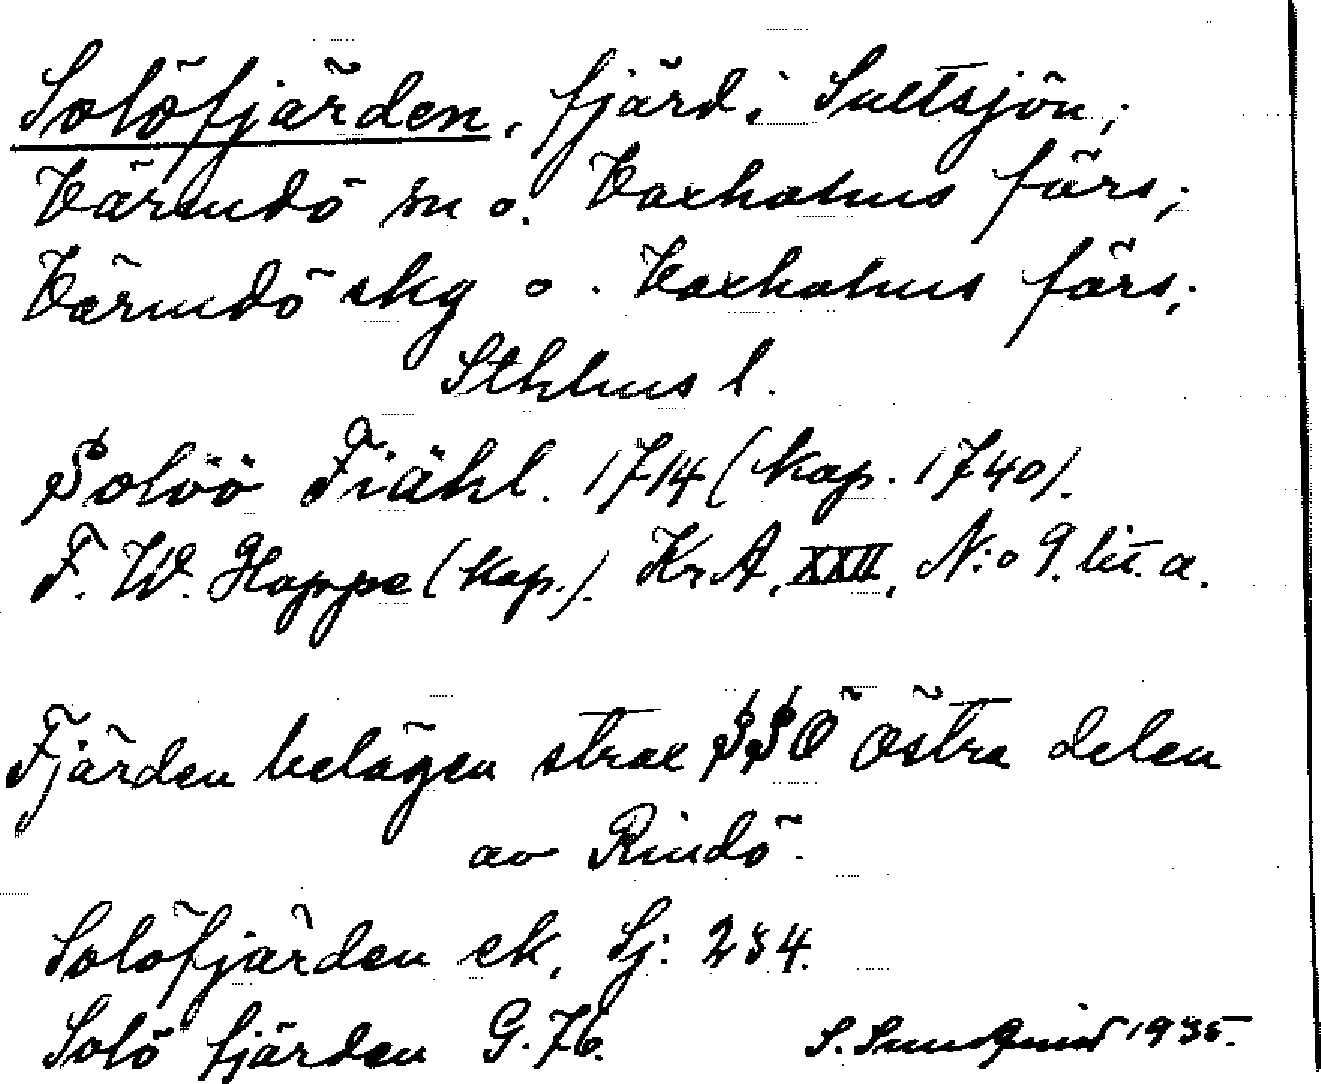 Solöfjärden, fjärd i Saltsjön;
Värmdö sn o. Vaxholms förs;
Värmdö skg o. Vaxholms förs;
Sthlms l.
Solöö Fiähl. 1714 (kop. 1740).
F. W. Hoppe (kop.). KrA, XXII, N:o 9. lit. a.
Fjärden belägen strax SSO östra delen
av Rindö.
Solöfjärden ek, Sj: 234.
Solö fjärden G. 76. S. Sundquist 1935.